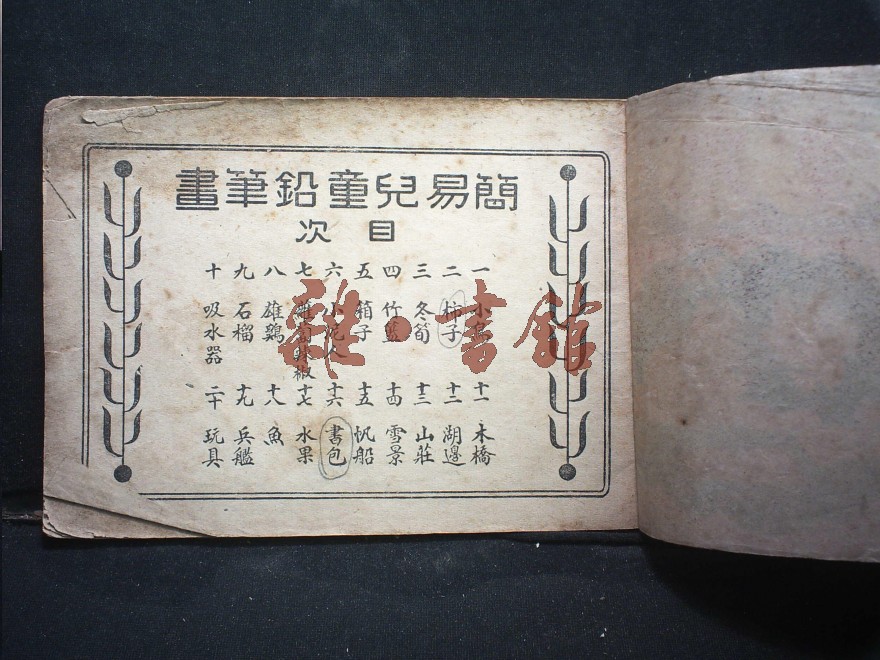 簡易兒童鉛筆畫
目次
一
二 柿子
三 冬筍
四 竹籃
五 箱子
六 小泥人
七
八 雄鷄
九 石榴
十 吸水器
十一 木橋
十二 湖邊
十三 山莊
十四 雪景
十五 帆船
十六 書包
十七 水果
十八 魚
十九 兵艦
二十 玩具
雜·書館